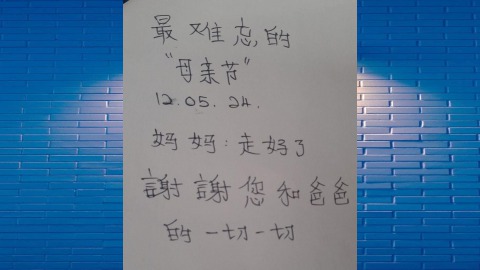 最难忘的
“母亲节”
12.05.24.
妈妈：走好了
謝謝您和爸爸
的一切一切